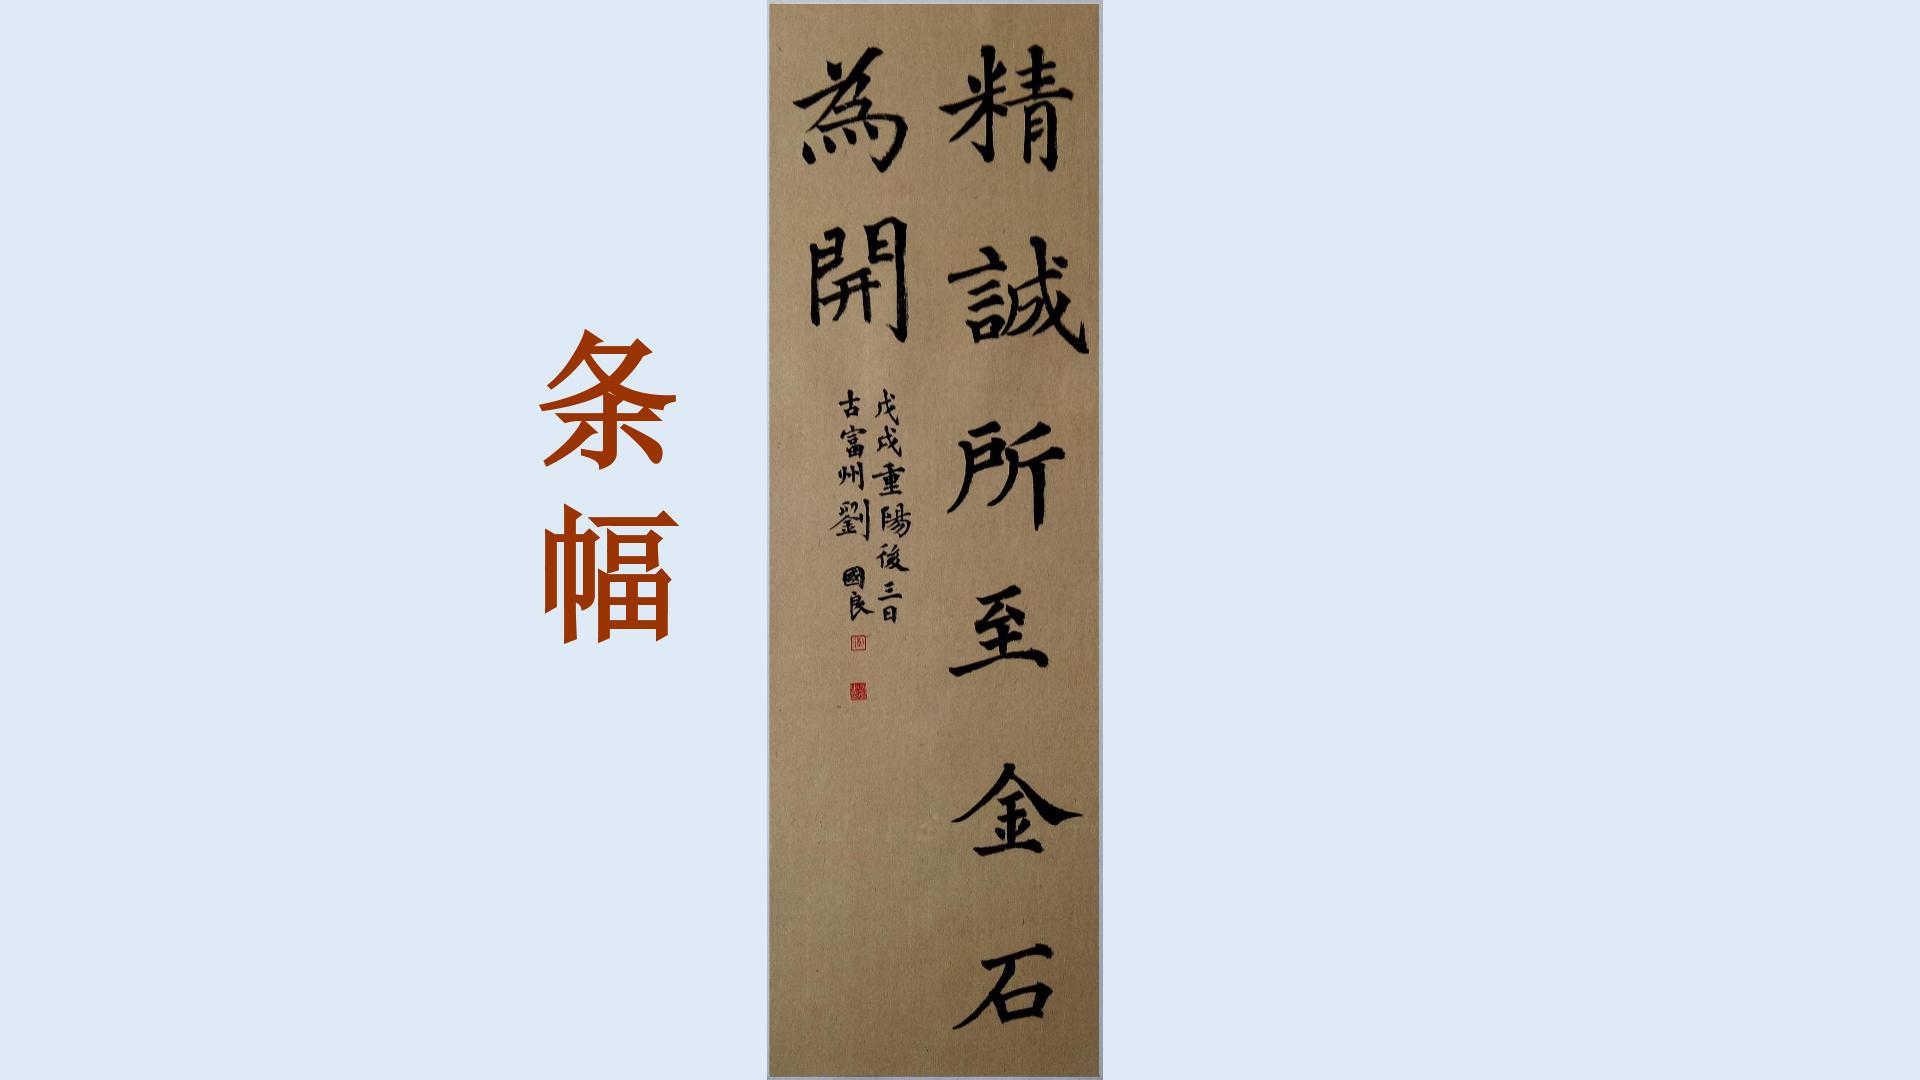 条幅
精誠所至金石
為開
戊戌重陽後三日
古富州劉國良